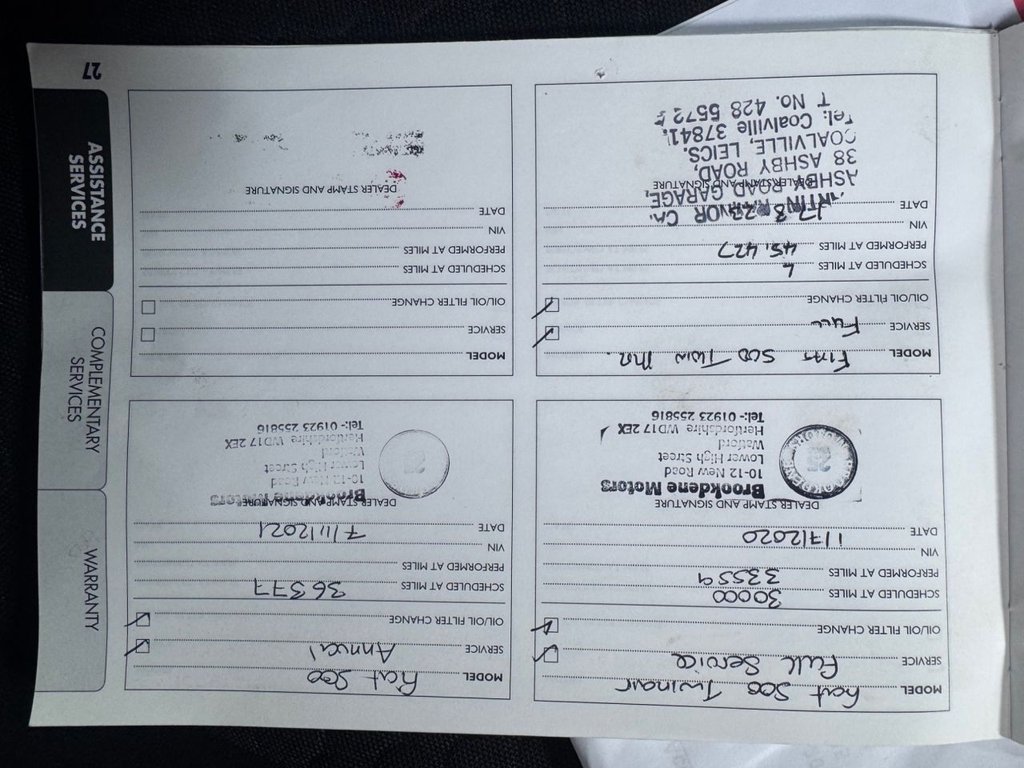 MODEL Fiat 500 Twinair
SERVICE Full Service
OIL/OIL FILTER CHANGE
SCHEDULED AT MILES 30000
PERFORMED AT MILES 33559
VIN
DATE 1/7/2020
DEALER STAMP AND SIGNATURE
Brookdene Motors
10-12 New Road
Lower High Street
Watford
Hertfordshire WD17 2EX
Tel:- 01923 255816
MODEL Fiat 500
SERVICE Annual
OIL/OIL FILTER CHANGE
SCHEDULED AT MILES 36377
PERFORMED AT MILES
VIN
DATE 7/11/2021
DEALER STAMP AND SIGNATURE
Brookdene Motors
10-12 New Road
Lower High Street
Watford
Hertfordshire WD17 2EX
Tel:- 01923 255816
MODEL FIAT 500 TWIN AIR.
SERVICE FULL
OIL/OIL FILTER CHANGE
SCHEDULED AT MILES
PERFORMED AT MILES 45,427
VIN
DATE
DEALER STAMP AND SIGNATURE
ASHBY ROAD GARAGE,
38 ASHBY ROAD,
COALVILLE, LEICS.
Tel: Coalville 37841.
T No. 428 5572
MODEL
SERVICE
OIL/OIL FILTER CHANGE
SCHEDULED AT MILES
PERFORMED AT MILES
VIN
DATE
DEALER STAMP AND SIGNATURE
WARRANTY
COMPLEMENTARY
SERVICES
ASSISTANCE
SERVICES
27